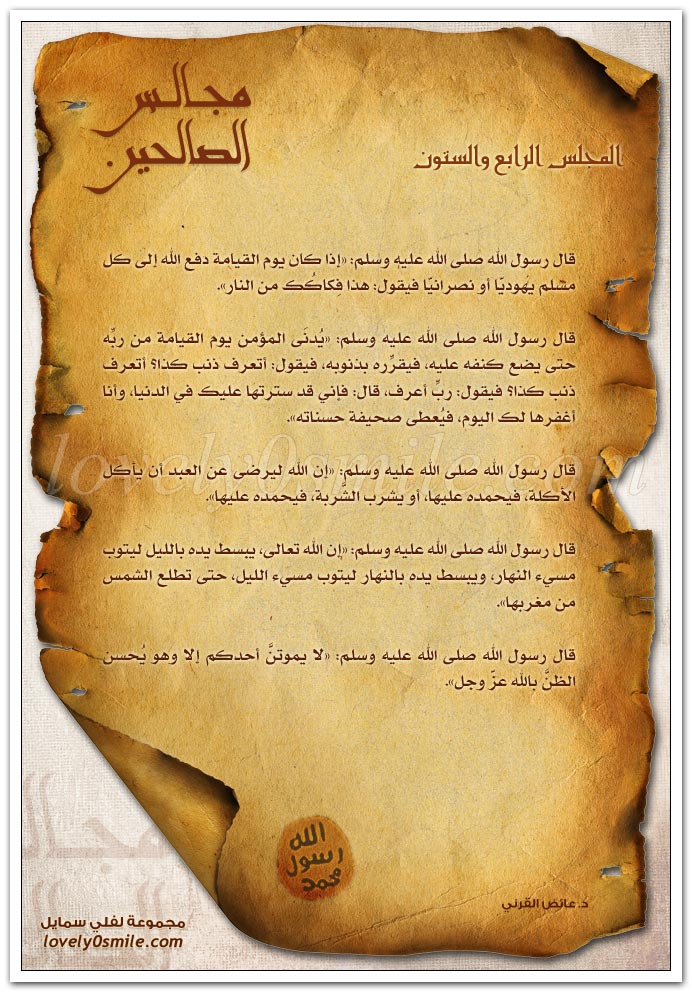 مجالس
الصالحين
المجلس الرابع والستون
قال رسول الله صلى الله عليه وسلم: «إذا كان يوم القيامة دفع الله إلى كل
مسلم يهوديًا أو نصرانيًا فيقول: هذا فِكاكُك من النار».
قال رسول الله صلى الله عليه وسلم: «يُدنَى المؤمن يوم القيامة من ربِّه
حتى يضع كنفه عليه، فيقرِّره بذنوبه، فيقول: أتعرف ذنب كذا؟ أتعرف
ذنب كذا؟ فيقول: ربِّ أعرف، قال: فإني قد سترتها عليك في الدنيا، وأنا
أغفرها لك اليوم، فيُعطى صحيفة حسناته».
قال رسول الله صلى الله عليه وسلم: «إن الله ليرضى عن العبد أن يأكل
الأكلة، فيحمده عليها، أو يشرب الشَّربة، فيحمده عليها».
قال رسول الله صلى الله عليه وسلم: «إن الله تعالى، يبسط يده بالليل ليتوب
مسيء النهار، ويبسط يده بالنهار ليتوب مسيء الليل، حتى تطلع الشمس
من مغربها».
قال رسول الله صلى الله عليه وسلم: «لا يموتنَّ أحدكم إلا وهو يُحسن
الظنَّ بالله عزّ وجل».
lovely0smile.com
الله
رسول
محمد
د.عائض القرني
مجالس
الصالحين
مجموعة لفلي سمايل
lovely0smile.com